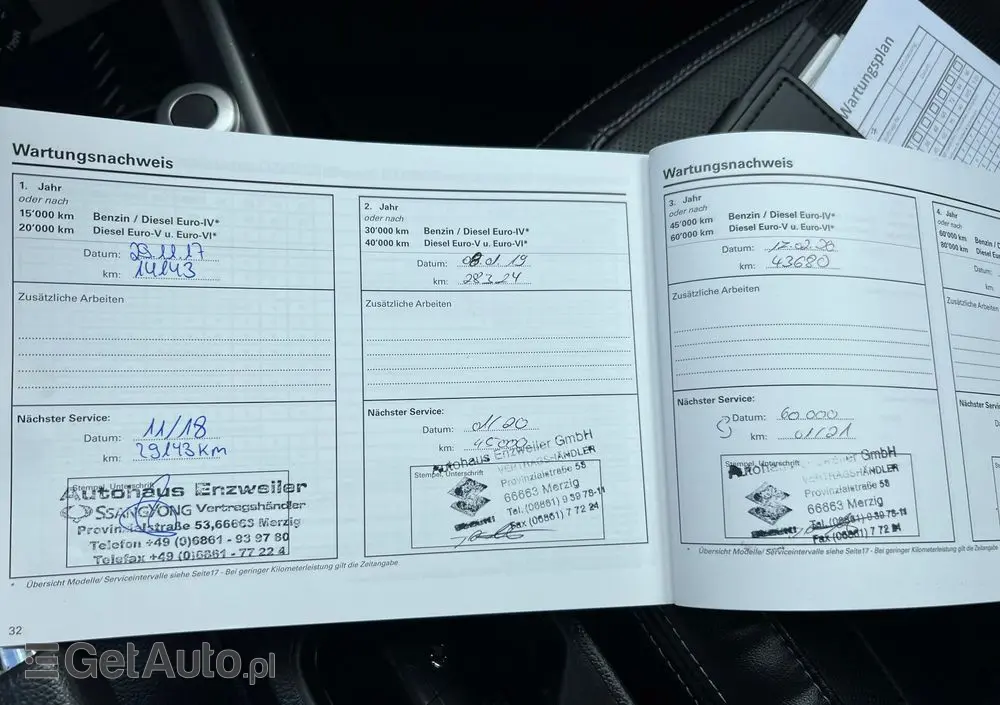 Wartungsplan
Wartungsnachweis
1. Jahr
oder nach
15'000 km Benzin / Diesel Euro-IV*
20'000 km Diesel Euro-V u. Euro-VI*
Datum: 23.11.17
km: 14143
Zusätzliche Arbeiten
Nächster Service:
Datum: 11/18
km: 29143 Km
Stempel, Unterschrift
Autohaus Enzweiler
SSANGYONG Vertragshändler
Provinzialstraße 53, 66663 Merzig
Telefon +49 (0)6861 - 93 97 80
Telefax +49 (0)6861 - 77 22 4
2. Jahr
oder nach
30'000 km Benzin / Diesel Euro-IV*
40'000 km Diesel Euro-V u. Euro-VI*
Datum: 08.01.19
km: 28324
Zusätzliche Arbeiten
Nächster Service:
Datum: 01/20
km: 45000
Stempel, Unterschrift
Autohaus Enzweiler GmbH
VERTRAGSHÄNDLER
Provinzialstraße 58
66663 Merzig
Tel. (06861) 9 39 78-11
Fax (06861) 7 72 24
SUZUKI
* Übersicht Modelle/ Serviceintervalle siehe Seite17 - Bei geringer Kilometerleistung gilt die Zeitangabe
32
Wartungsnachweis
3. Jahr
oder nach
45'000 km Benzin / Diesel Euro-IV*
60'000 km Diesel Euro-V u. Euro-VI*
Datum: 17.02.20
km: 43680
Zusätzliche Arbeiten
Nächster Service:
Datum: 60.000
km: 01/21
Stempel, Unterschrift
GmbH
VERTRAGSHÄNDLER
Provinzialstraße 58
66663 Merzig
Tel. (06861) 9 39 78-11
Fax (06861) 7 72 24
* Übersicht Modelle/ Serviceintervalle siehe Seite17 - Bei geringer Kilometerleistung gilt die Zeitangabe
4. Jahr
oder nach
60'000 km Benzin / D
80'000 km Diesel Eu
Datum:
km:
Zusätzliche Arbeiten
Nächster Serv
GetAuto.pl